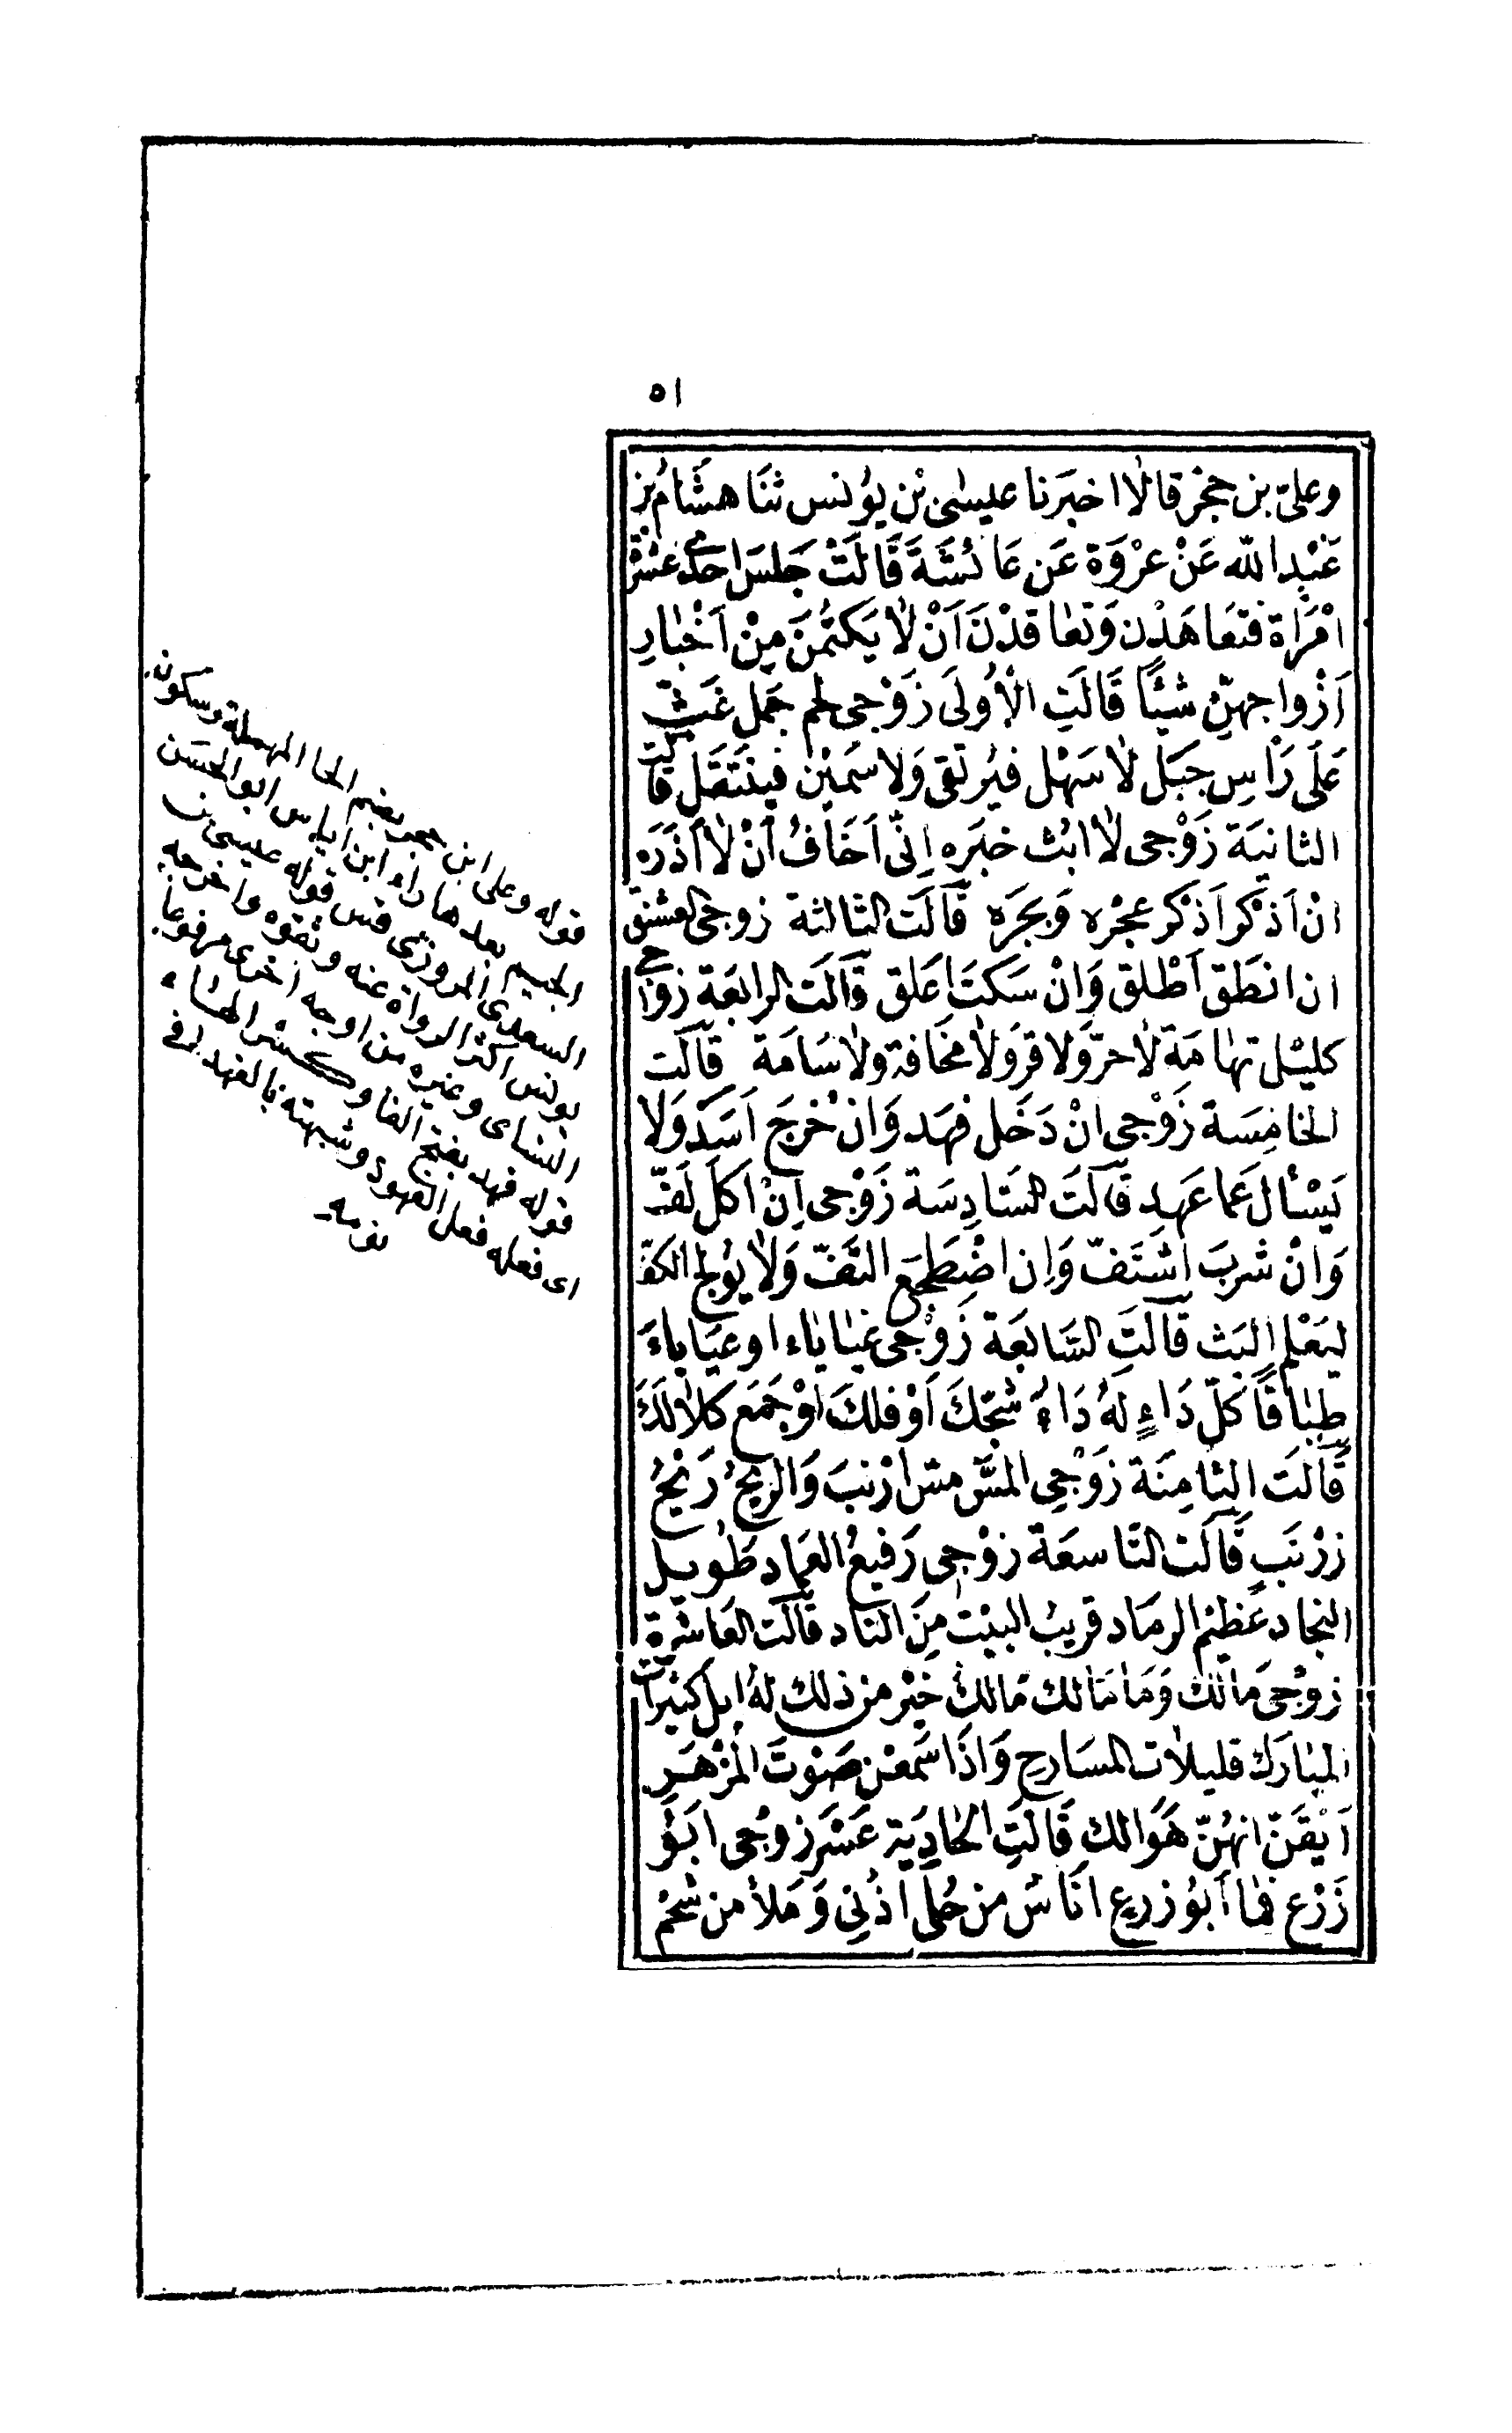 ٥١
وعلىّ بن حجْر قالا اخبَرنا عليسٰى بْن يوُنس ثنَا هشَامُ بن
عَبْدِ الله عَنْ عرْوَة عَن عَائشَةَ قَالَتْ جَلسَ احدٰى عشر
امْرَاة فتعَاهَدْن وَتعٰاقدْنَ اَنْ لٰا يَكتُمْنَ مِنْ اَخْبٰارِ
اَزْواجهِنّ شيْئًا قَالَتِ الْأُولَى زَوْجى لحم جَمل غَثّ
عَلَى رَاْسِ جبَل لٰا سَهْل فيُرتقى وَلا سَميْن فينْتَقَل قالت
الثانيَة زَوْجى لٰا ابُث خبَره اِنّى اَخَافُ اَنْ لٰا اَذَرَه
انْ اَذكر اَذكر عجْره وَبجَره قَالَت الثالثة زوجى العشنق
ان انطق اَطْلق وَانْ سَكتَ اعَلق قَالَت الرابعَة زوْجى
كليْل تهٰامَة لٰا حرّ وَلا قر وَلٰا مخَافة ولٰا سَامَة قَالَت
الخامِسَة زَوْجى انْ دَخَل فهَد وَانْ خرَجَ اَسَدْ وَلا
يَسْأل عَما عَهِد قَالَتَ السَادِسَة زَوْجى اِنْ اَكَلَ لَفّ
وَانْ شربَ اشتَفّ وَاِن اضْطَجَعَ التَفّ وَلٰا يوُلج الكفّ
ليَعْلم البَث قَالَتَ السَّابعَة زَوْجى غيٰايٰاء او عيَايٰاءَ
طبٰاقًا كلّ دَاءٍ لهُ دَاءُ شجّكَ اَوْ فلكَ اوْ جَمَع كلاًّ لَكَ
قَالَت الثامِنَة زَوْجِى المَسّ مسّ ارْنبَ وَالريْحُ رَيْحُ
زرْنَبِ قَالَت التَّاسعَة زوْجى رَفيعُ العمَاد طَويل
النجاد عَظيْم الرمَاد قريبُ البيْت مِنَ الناد قَالَت العَاشرة
زوْجى مَالك وَمَا مَالك مَالكُ خيْر من ذلك لهُ ابل كثيرات
المبٰارَك قليلٰات المسَارح وَاذَا سَمعْن صَوْتَ الْمزْهَرِ
اَيْقَنّ انهُنّ هَوَالك قَالَتِ الحٰادِيَة عَشَر زوْجى ابَوُ
زَرْع فمٰا اَبوُ زرع انَاسَ من حُلى اذُنِى وَمَلأ من شحْم
قوله وعلى ابن حجر بضم الحا المهملة وسكون
الجيم بعدها راء ابن اياس ابو الحسَن
السعدى المروزى قس قوله عيسى بن
يونس اكثر الرواة عنه وثقوه واخرجه
النساى وغيره من اوجه اخرى مرفوعا
قوله فهد بفتح الفا وكسْر الهاء
اى فعله فعل الفهود وشبهته بالفهد فى
نومه